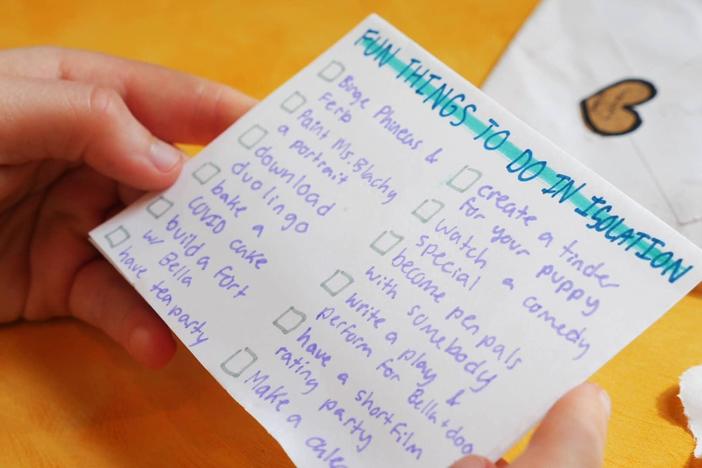 FUN THINGS TO DO IN ISOLATION
Binge Phineas &
Ferb
Paint Ms. Blachy
a portrait
download
duolingo
bake a
COVID cake
build a fort
w/ Bella
have tea party
create a tinder
for your puppy
watch a comedy
special
become pen pals
with somebody
write a play &
perform for Bella + doo
have a short film
rating party
Make a